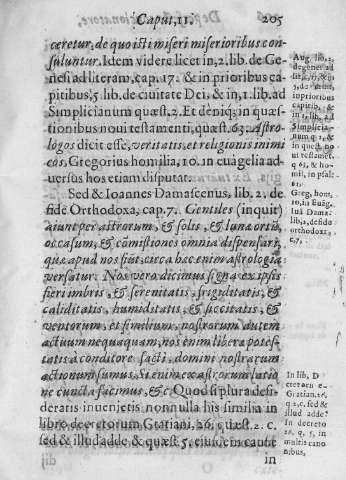 Caput, 11. 205
cæretur, de quo isti miseri miserioribus con-
suluntur. Idem videre licet in, 2. lib. de Ge-
nesi ad literam, cap. 17. & in prioribus ca-
pitibus, 5 lib. de ciuitate Dei, & in, 1. lib. ad
Simplicianum quæst. 2. Et deniq; in quæs-
tionibus noui testamenti, quæst. 63. Astro-
logos dicit esse, veritatis et religionis inimi
cos, Gregorius homilia, 10. in euāgelia ad-
uersus hos etiam disputat.
Sed & Ioannes Damascenus, lib. 2. de
fide Orthodoxa, cap. 7. Gentiles (inquit)
aiunt per astrorum, & solis, & lunæ ortū,
occasum, & comistiones omnia dispensari,
quæ apud nos fiūt, circa hæc enim astrologia
versatur. Nos vero dicimus signa ex ipsis
fieri imbris, & serenitatis, frigiditatis, &
caliditatis, humiditatis, & siccitatis, &
ventorum, et similium, nostrorum autem
actuum nequaquam, nos enim libera potes-
tatis à conditore facti, domini nostrarum
actionum sumus, Si enim ex astrorum latio
ne cuncta facimus, &c. Quod si plura desi-
deratis inuenietis nonnulla his similia in
libro decretorum Gratiani, 26. quæst. 2. c.
sed & illud adde & quæst 5, eius, ein caute
in
Aug. lib. 2.
de gener. ad
in prioribus
capitib. &
in 1. lib. ad
Simplicia-
num q. 2, &
in quest. no
ui testamēt.
hom. in psal-
Greg. hom.
10. in Euāg.
Ioā. Dama.
lib. 2, defide
orthodoxa
c. 7.
In lib. D
ecretorū e
Gratian. 26.
q 2, c. sed &
illud adde
In decreto
26, q. 5, in
multis cano
nibus,